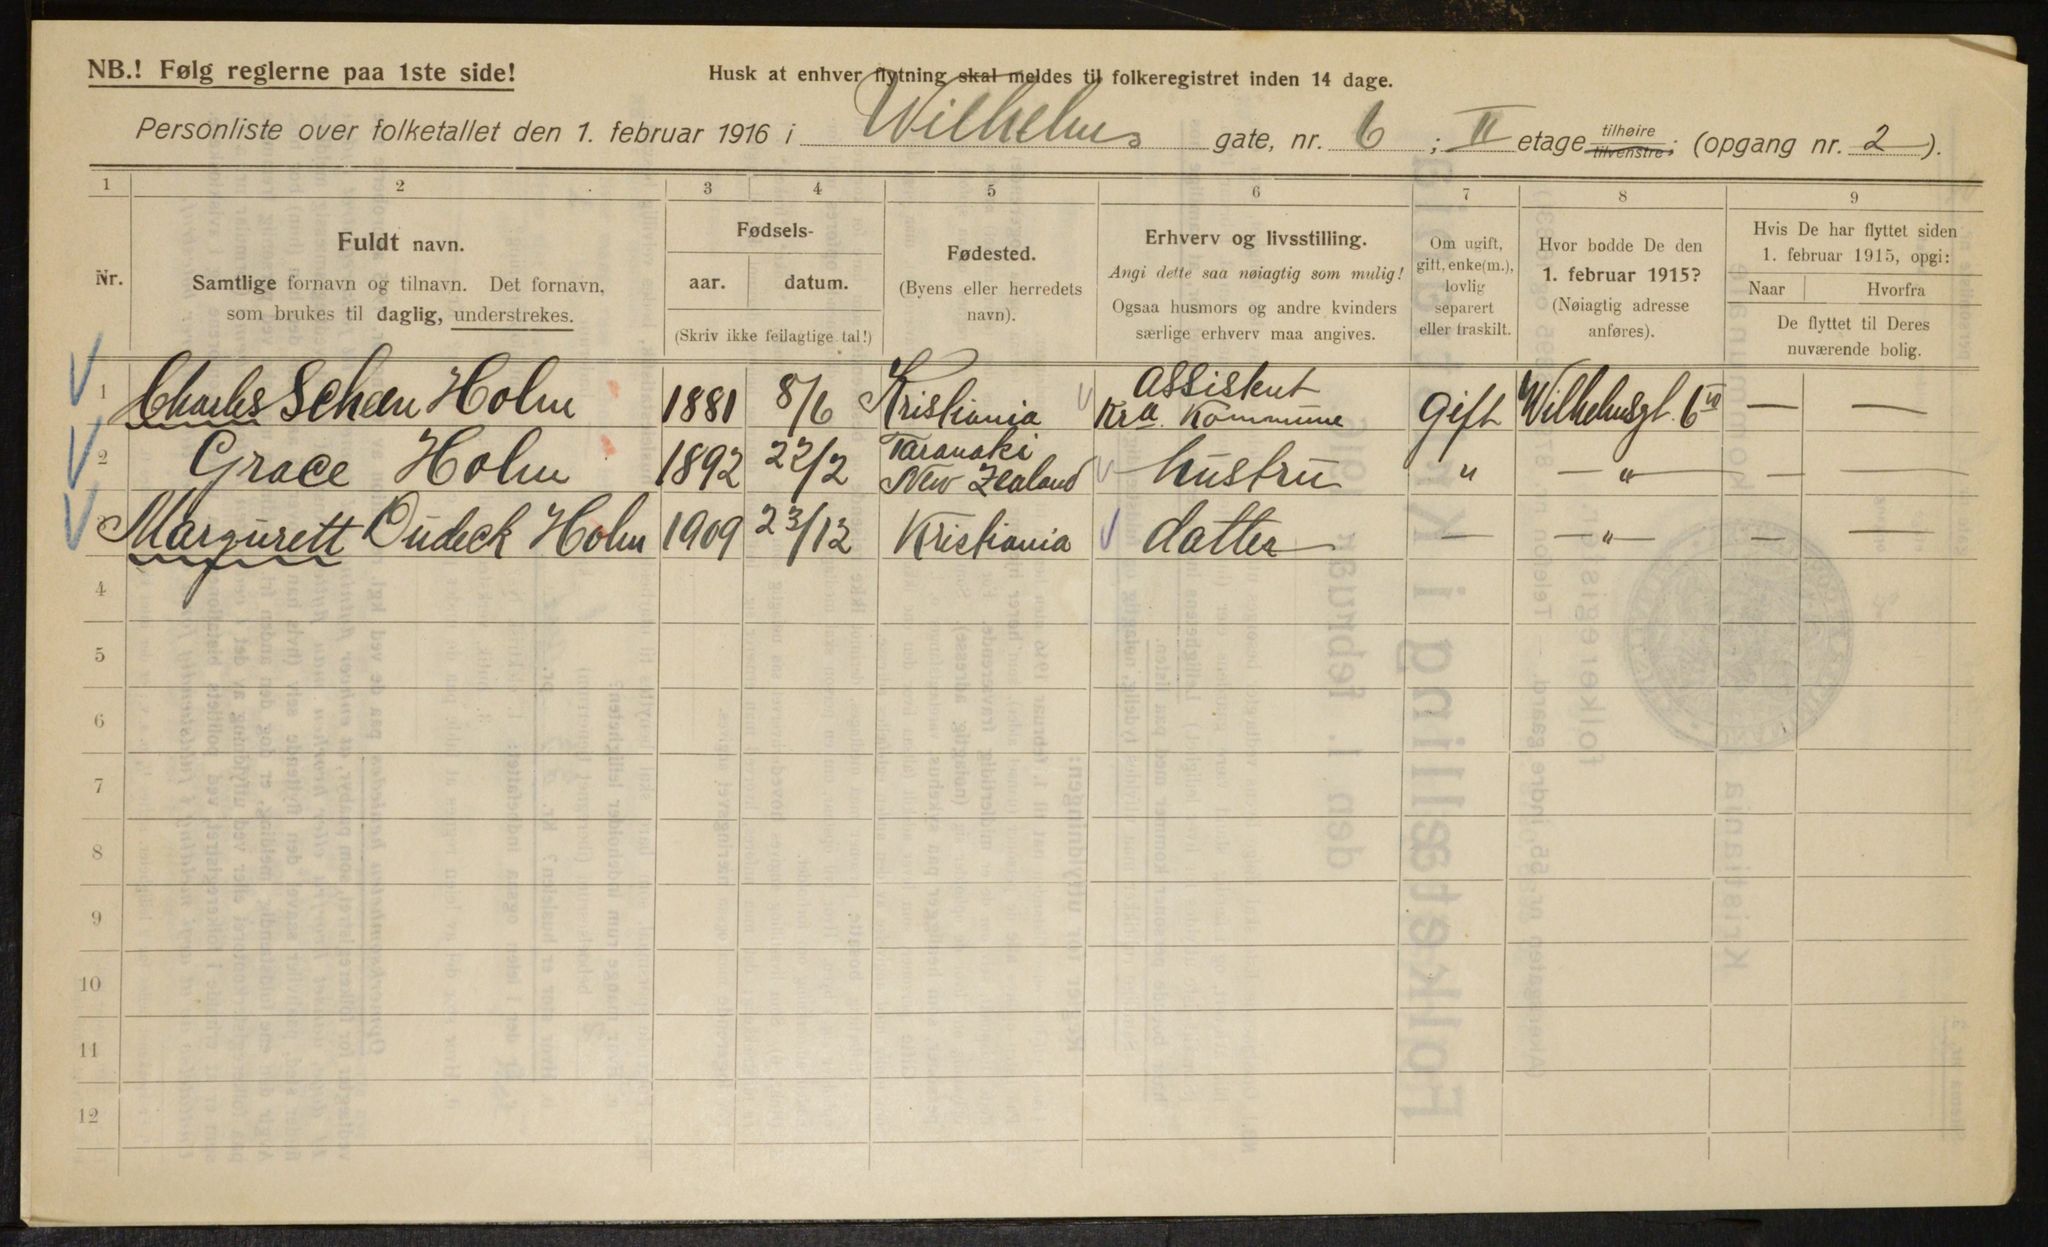 NB.! Følg reglerne paa 1ste side!
Husk at enhver flytning skal meldes til folkeregistret inden 14 dage.
Personliste over folketallet den 1. februar 1916 i Wilhelms gate, nr. 6 ; II etage tilhøire tilvenstre ; (opgang nr. 2 ).
1 2 3 4 5 6 7 8 9
Nr.
Fuldt navn.
Samtlige fornavn og tilnavn. Det fornavn,
som brukes til daglig, understrekes.
Fødsels-
aar. datum.
(Skriv ikke feilagtige tal!)
Fødested.
(Byens eller herredets
navn).
Erhverv og livsstilling.
Angi dette saa nøiagtig som mulig!
Ogsaa husmors og andre kvinders
særlige erhverv maa angives.
Om ugift,
gift, enke(m.),
lovlig
separert
eller fraskilt.
Hvor bodde De den
1. februar 1915?
(Nøiagtig adresse
anføres).
Hvis De har flyttet siden
1. februar 1915, opgi:
Naar Hvorfra
De flyttet til Deres
nuværende bolig.
1 Charles Scheen Holm 1881 8/6 Kristiania assistent Kra. Kommune Gift Wilhelmsgt. 6 — —
2 Grace Holm 1892 22/2 Taranaki New Zealand hustru " — " — — —
3 Margurett Dudeck Holm 1909 23/12 Kristiania datter — — " — — —
4
5
6
7
8
9
10
11
12